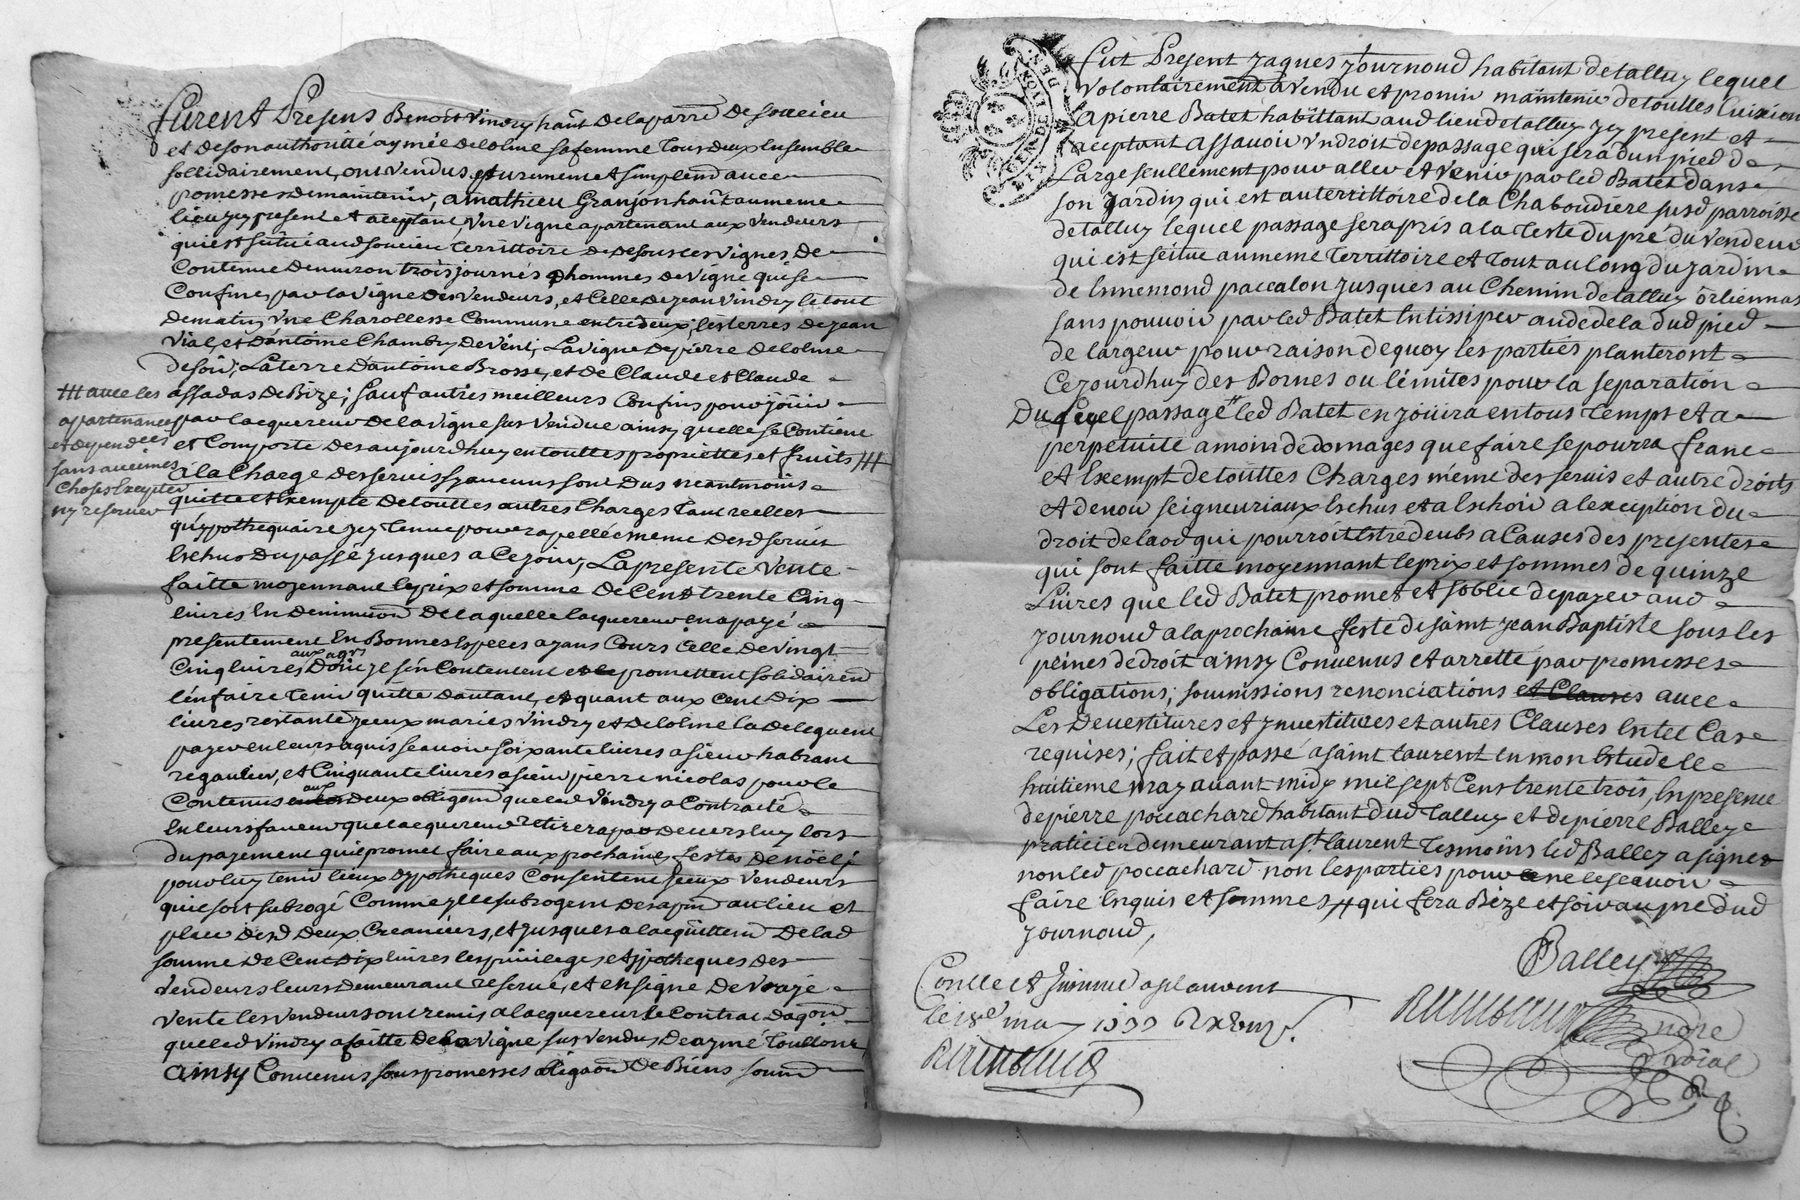 furent Presens Benoist Vindry hañt de la parr̃e de soucieu
et de son authorité aymée delolme sa femme tous deux Ensemble
sollidairement, ont vendus purement et simplem̃t avec
promesses de maintenir, a mathieu Granjon hañt au meme
lieu jcy present et aceptant, vne vigne apartenant aux vendeurs
qui est scituée aud soucieu territtoire de desous les vignes de
Contenue denviron trois journés dhommes de vigne qui se
Confine par la vigne des vendeurs, et Celle de jean vindry le tout
de matin, vne Charollesse Commune entre deux; les terres de jean
vial et dantoine Chambry de vent; La vigne de pierre delolme
de soir; La terre dantoine Brosse, et de Claude et Claude
assadas de Bize; sauf autres meilleurs Confins pour jouir
par lacquereur de la vigne sus vendue ainsy quelle se Contient
et Comporte des aujourdhuy en touttes proprietés et fruits ///
/// avec les
apartenances
et dependces
sans aucunes
Choses Excepter
ny reserver
a la Charge des servis sy aucuns sont dus neantmoins
quitte et Exempte de touttes autres Charges tant reelles
qu'ypothequaire jcy tenue pour rapellée meme desd servis
Eschus du passé jusques a Ce jour, La presente vente
faitte moyennant le prix et somme de Cent trente Cinq
livres En deminuon̄ de laquelle lacquereur en a payé
presentement En Bonnes Especes ayans Cours Celle de vingt
Cinq livres, dont jl sen Contentent et promettent solidairem̃
aux
l'en faire tenir quitte dautant, et quant aux Cent dix
livres restante jceux mariés vindry et delolme la deleguent
payer en leurs aquis scavoir soixante livres a sieur habrant
regaulier, et Cinquante livres a sieur pierre nicolas pour le
Contenus aux deux obligaõn que led vindry a Contracté
En leurs faveur que lacquereur retirera par devers luy lors
du payement quil promet faire aux prochaines festes de noël;
pour luy tenir lieux dypotheques Consentent jceux vendeurs
quil soit subrogé Comme jl le subrogent des apñt au lieu et
place desd deux Creanciers, et jusques a lacquittem̃ de lad
somme de Cent dix livres les privileges et jpotheques des
vendeurs leurs demeurant reservé, et en signe de vraye
vente les vendeurs ont remis a lacquereur le Contrac daqon̄
que led vindry a faitte de la vigne sus vendus de aymé toullon
ainsy Convenus sous promesses obligaõn de Biens soum̃
Fut Present Jaques Journoud habitant de talluy lequel
volontairement a vendu et promir maintenir de touttes Evixion
a pierre Batet habittant aud lieu de talluy jcy present et
aceptant assavoir vn droit de passage qui sera dun pied de
Large seullement pour aller et venir par led Batet dans
son jardin qui est au territtoire de la Chaboudiere susd parroisse
de talluy lequel passage sera pris a la teste du pré du vendeur
qui est scitue au meme territtoire et tout au long du jardin
de Ennemond paccalon jusques au Chemin de talluy orliennas
sans pouvoir par led Batet Entissiper audedela dud pied
de largeur pour raison de quoy les parties planteront
Cejourdhuy des Bornes ou lemites pour la separation
Duquel passage # led Batet en jouira en tous temps et a
perpetuité a moin de domages que faire se pourra franc
et Exempt de touttes Charges meme des servis et autre droits
et denoir seigneuriaux Eschus et a Eschoir a lexception du
droit de laod qui pourroit Estre deubs a Causes des presentes
qui sont faitte moyennant le prix et sommes de quinze
Livres que led Batet promet et soblic de payer aud
journoud a la prochaine feste de saint jean Baptiste sous les
peines de droit ainsy Convenus et arretté par promesses
obligations; soumissions renonciations et Clauses avec
Les Devestitures et jnvestitures et autres Clauses En tel Cas
requises; fait et passé a saint laurent En mon Estude le
huitieme may avant midy mil sept Cens trente trois, En presence
de pierre poccachard habitant dud talluy et de pierre Balley
praticien demeurant a st laurent tesmoins led Balley a signer
non led poccachard non les parties pour ne le scavoir
faire Enquis et sommes # qui fera Bize et soir au pre dud
journoud,
Balley
nore
royal